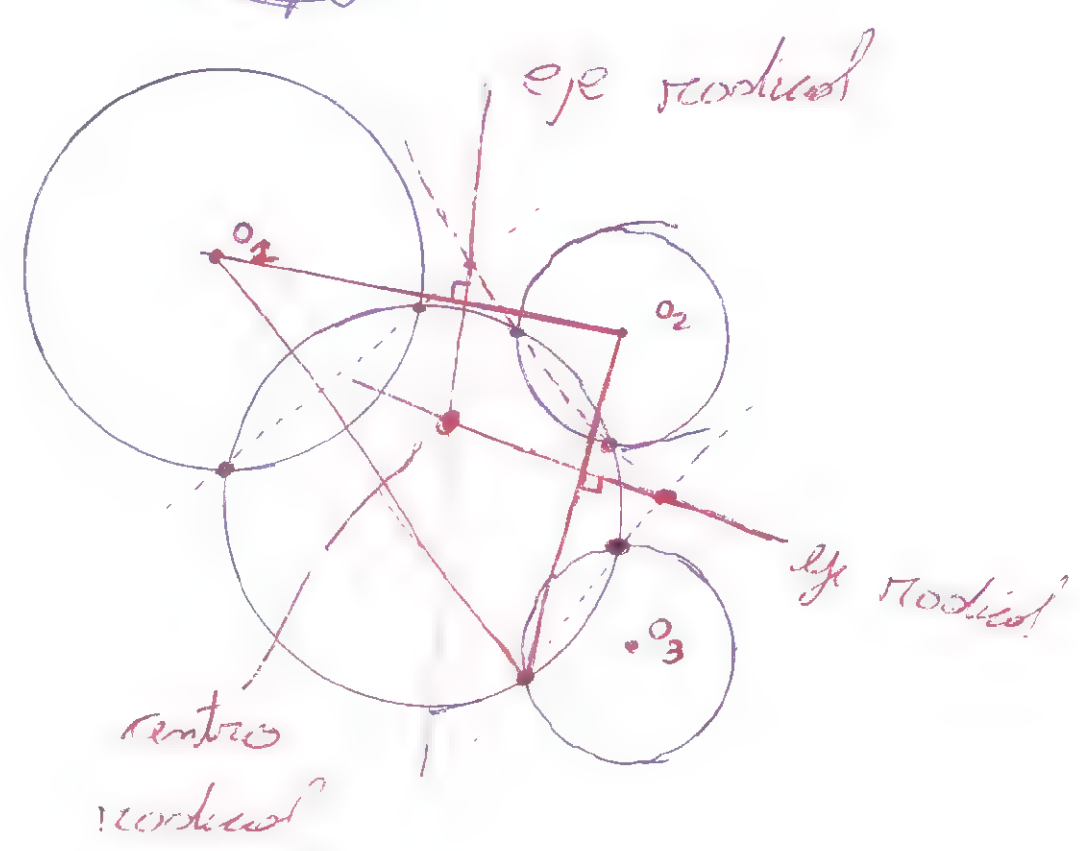 eje radical
O1
O2
eje radical
O3
centro
radical